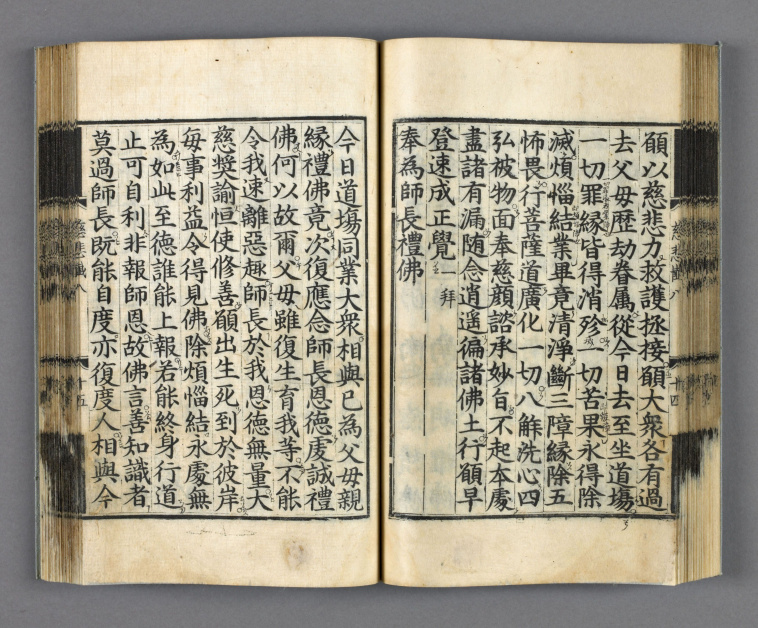 願以慈悲力救護拯接願大衆各有過
去父母歷劫眷属從今日去至坐道塲
一切罪縁皆得消殄一切苦果永得除
滅煩惱結業畢竟清淨斷三障縁除五
怖畏行菩薩道廣化一切八解洗心四
弘被物面奉慈顔諮承妙旨不起本處
盡諸有漏随念逍遥徧諸佛土行願早
登速成正覺一拜
奉為師長禮佛
今日道塲同業大衆相與已為父母親
縁禮佛竟次復應念師長恩德處誠禮
佛何以故爾父母雖復生育我等不能
令我速離惡趣師長於我恩德無量大
慈奬諭恒使修善願出生死到於彼岸
每事利益令得見佛除煩惱結永處無
為如此至德誰能上報若能終身行道
止可自利非報師恩故佛言善知識者
莫過師長既能自度亦復度人相與今
慈悲懺八
十四
慈悲懺八
十五